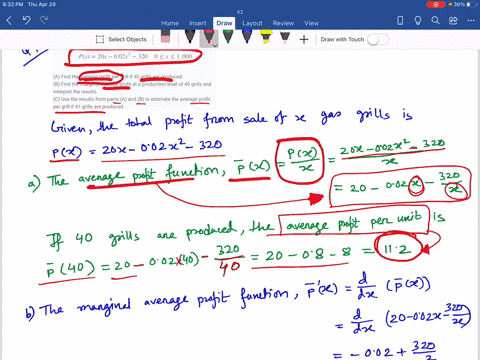 9:32 PM Thu Apr 29
42
30%
Home Insert Draw Layout Review View
Select Objects
Draw with Touch
P(x) = 20x - 0.02x² - 320 0 ≤ x ≤ 1,000
(A) Find the average profit per grill if 40 grills are produced.
(B) Find the marginal average profit at a production level of 40 grills and
interpret the results.
(C) Use the results from parts (A) and (B) to estimate the average profit
per grill if 41 grills are produced.
Given, the total profit from sale of x gas grills is
P(x) = 20x - 0.02x² - 320
a) The average profit function, P̅(x) = P(x)/x = (20x - 0.02x² - 320)/x
= 20 - 0.02x - 320/x
If 40 grills are produced, the average profit per unit is
P̅(40) = 20 - 0.02×(40) - 320/40 = 20 - 0.8 - 8 = 11.2
b) The marginal average profit function, P̅'(x) = d/dx (P̅(x))
= d/dx (20 - 0.02x - 320/x)
= -0.02 + 320/